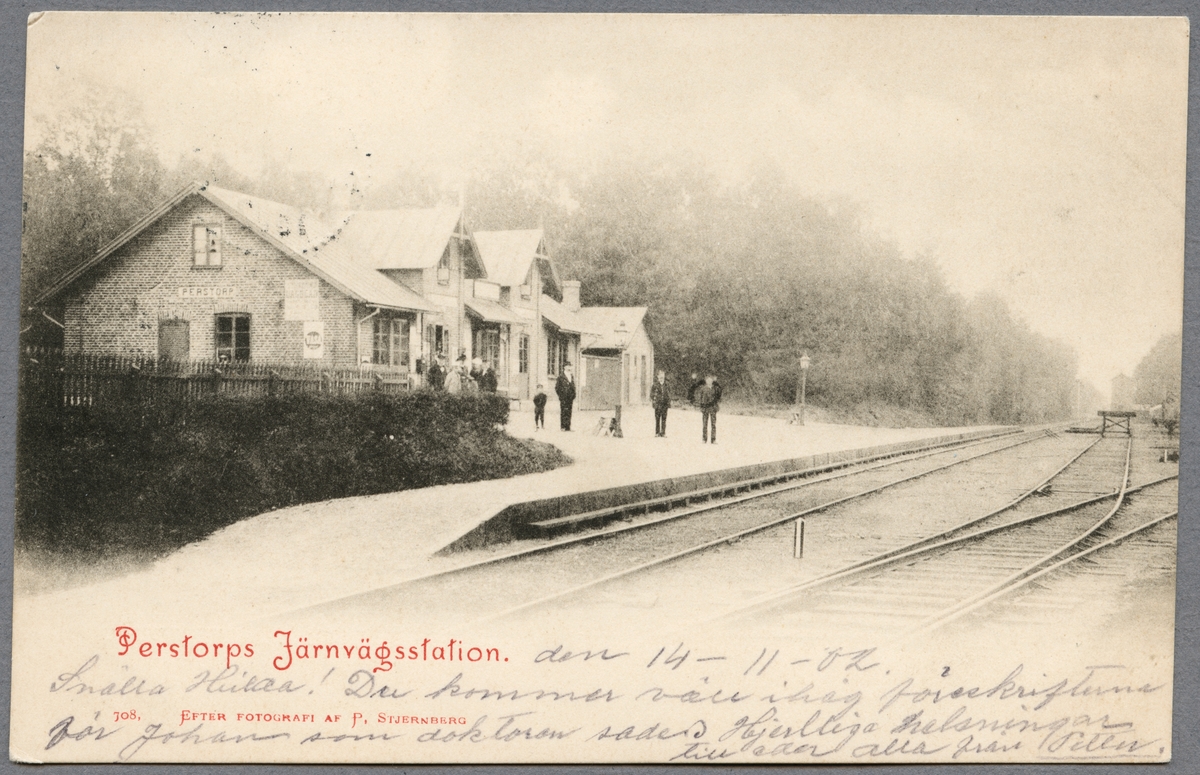 PERSTORP
Perstorps Järnvägsstation. den 14-11-02.
Snälla Hulda! Du kommer väll ihåg föreskrifterna
708, EFTER FOTOGRAFI AF P, STJERNBERG
för Johan som doktoren sade? Hjertliga helsningar
till eder alla från